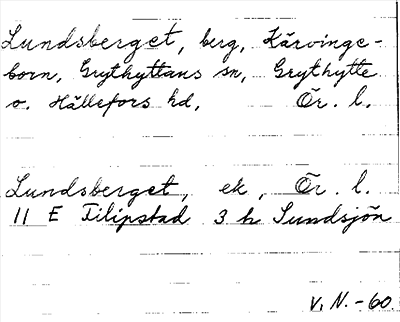 Lundsberget, berg, Kärvinge-
born, Grythyttans sn, Grythytte
o. Hällefors hd, Ör. l.
Lundsberget, ek, Ör. l.
11 E Filipstad 3 h Sundsjön
V. N. -60.